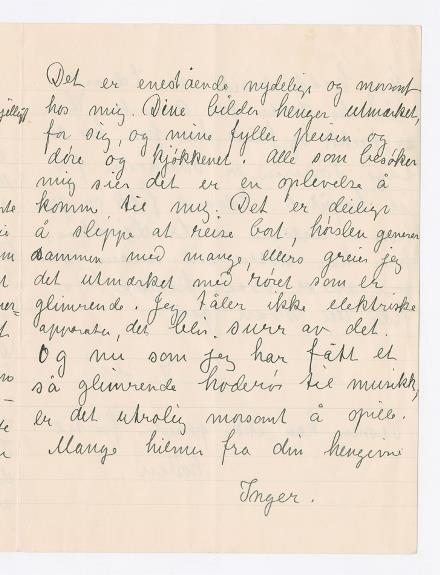 Det er enestående nydelig og morsomt
hos mig. Dine bilder henger utmærket,
for sig, og mine fyller peisen og
døre og kjøkkenet. Alle som besøker
mig sier det er en oplevelse å
komme til mig. Det er deilig
å slippe at reise bort, hørslen generer
sammen med mange, ellers greier jeg
det utmærket med røret som er
glimrende. Jeg tåler ikke elektriske
apparater, det blir surr av det.
Og nu som jeg har fått et
så glimrende hoderør til musikk,
er det utrolig morsomt å spille.
Mange hilsner fra din hengivne
Inger.